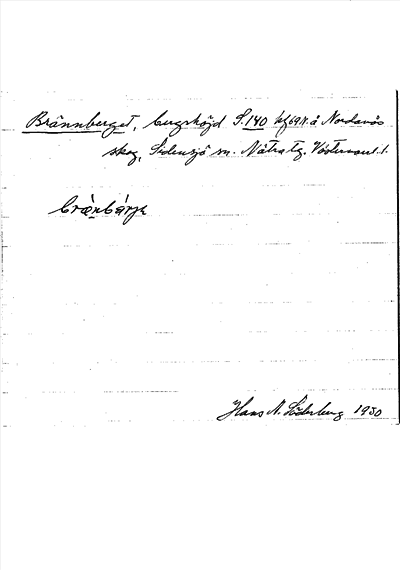 Brännberget, bergshöjd S.140 kf69N. å Nordanås
skog, Sidensjö sn. Nätra tg. Västernorrl. l.
bræ̀nbárjə
Hans N. Söderberg 1930